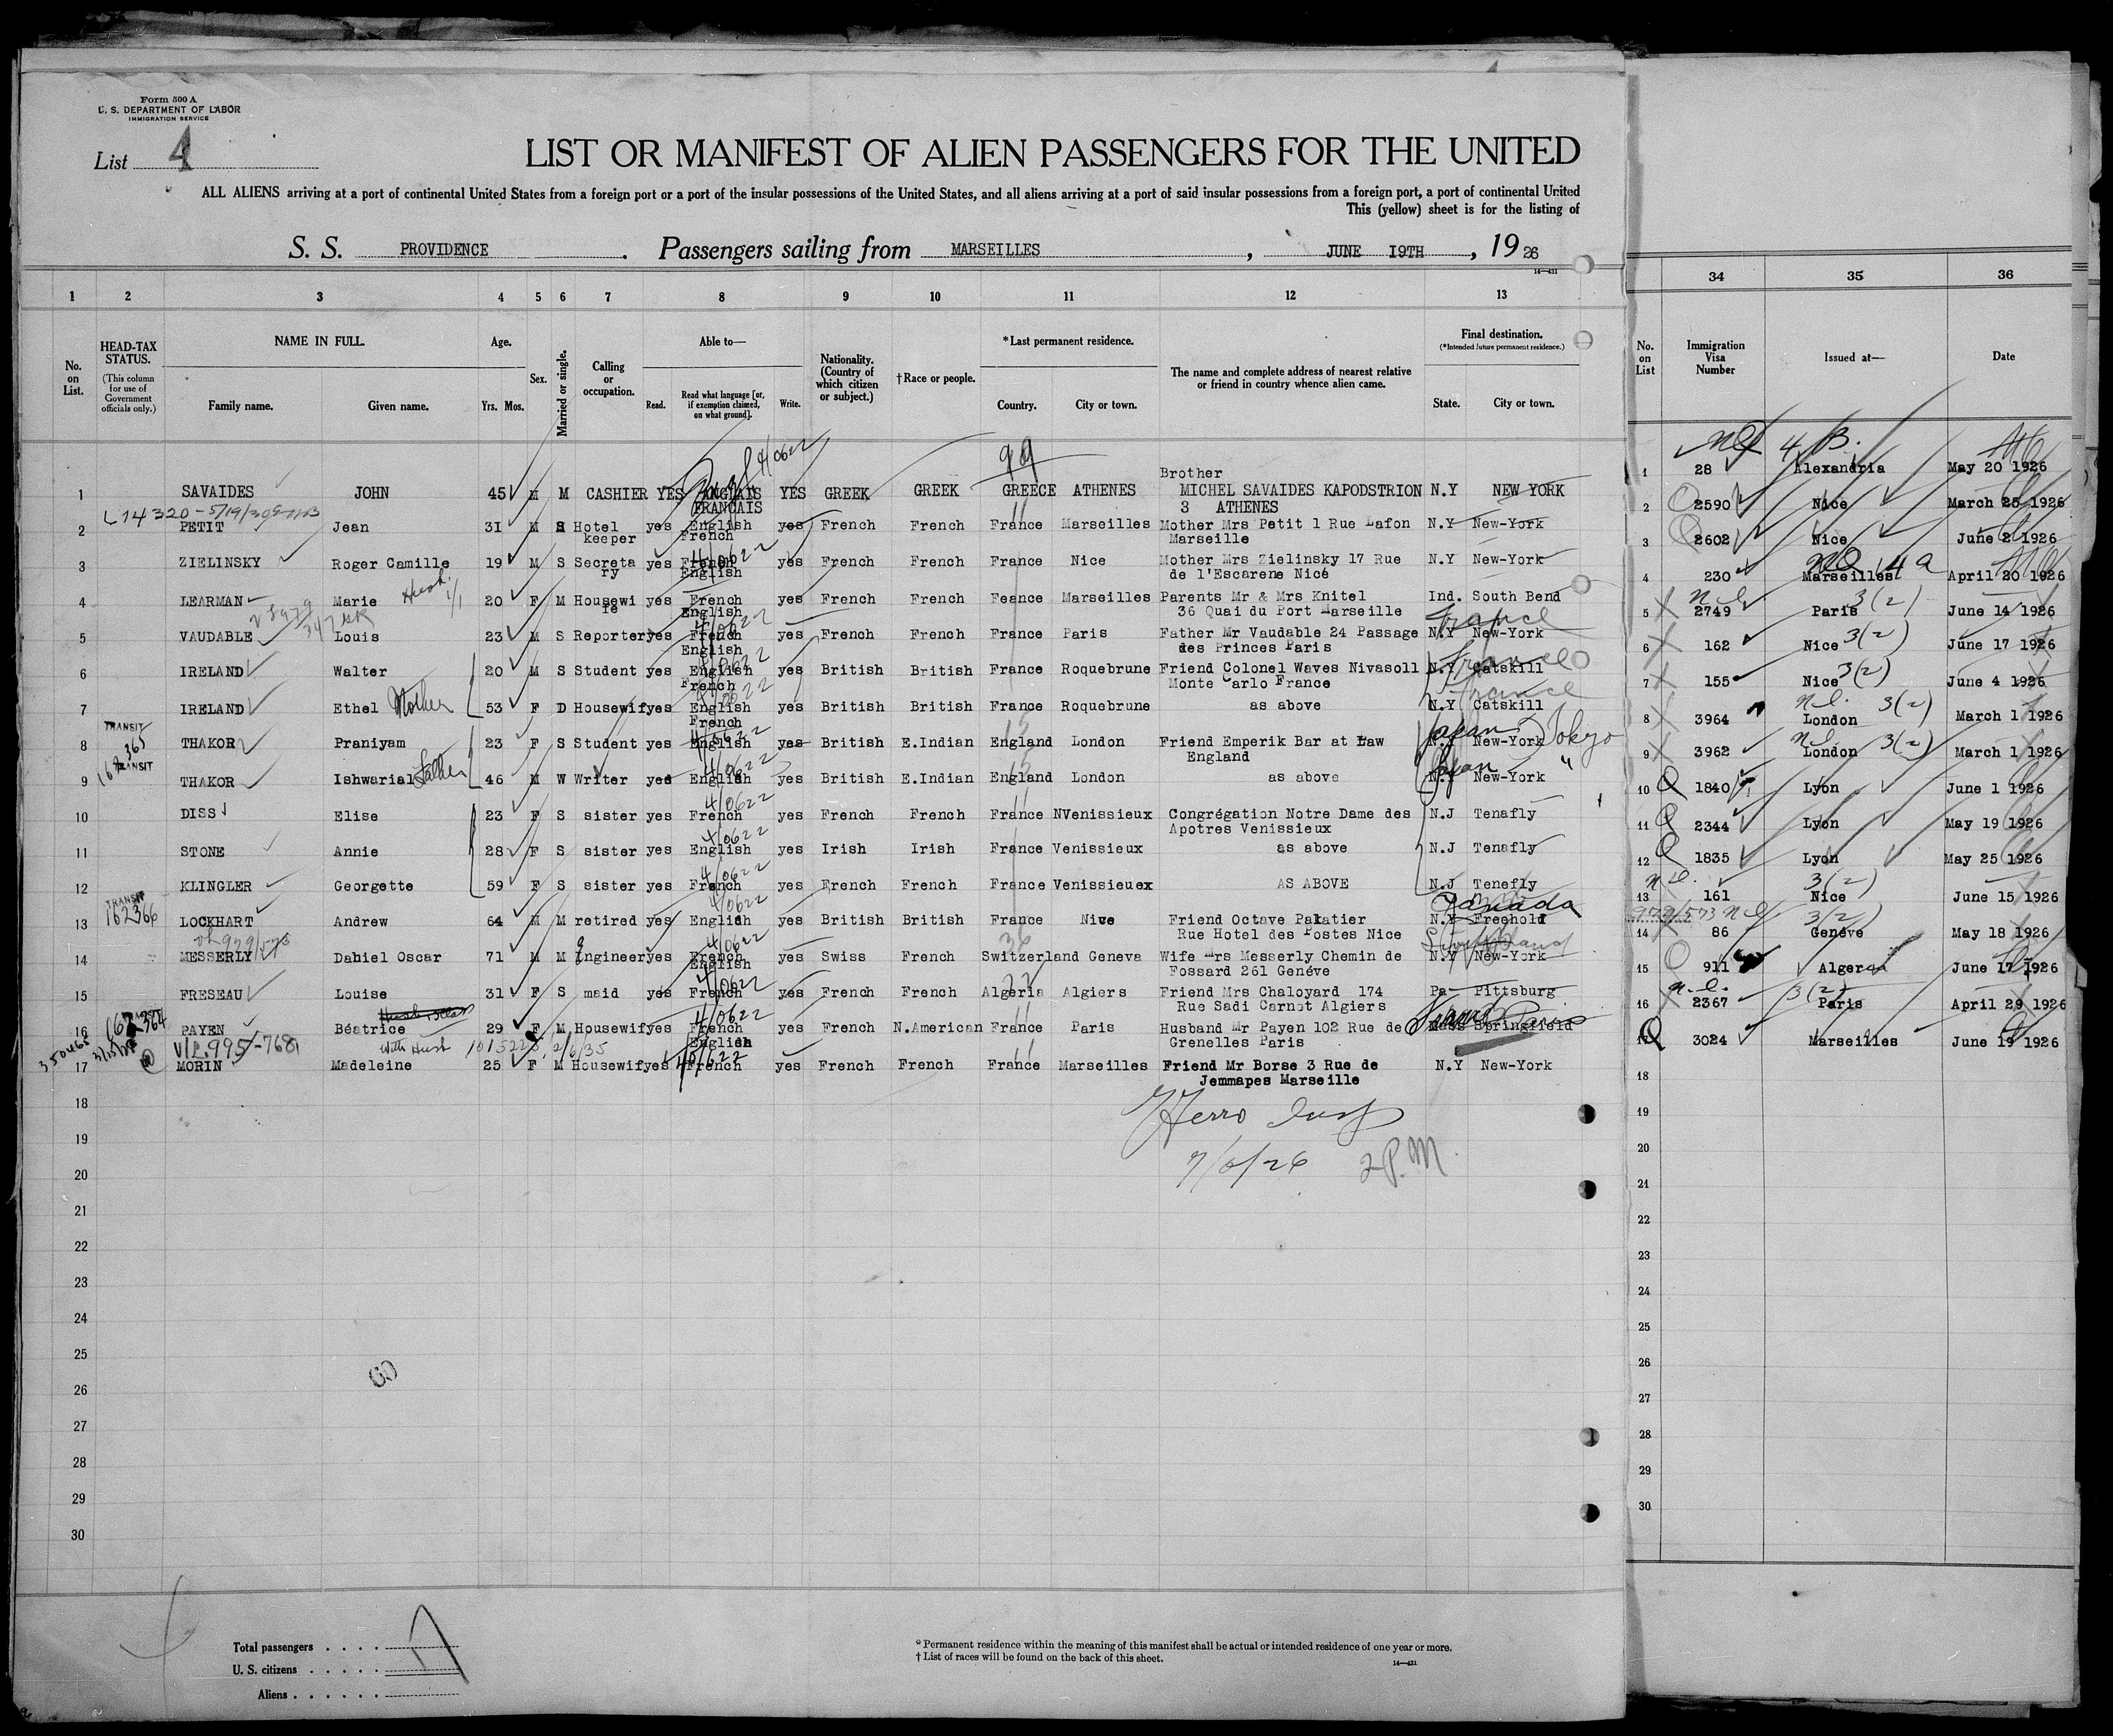 Form 500 A
U. S. DEPARTMENT OF LABOR
IMMIGRATION SERVICE
List 4
LIST OR MANIFEST OF ALIEN PASSENGERS FOR THE UNITED
ALL ALIENS arriving at a port of continental United States from a foreign port or a port of the insular possessions of the United States, and all aliens arriving at a port of said insular possessions from a foreign port, a port of continental United
This (yellow) sheet is for the listing of
S. S. PROVIDENCE . Passengers sailing from MARSEILLES , JUNE I9TH , 19 26
14—431
1 2 3 4 5 6 7 8 9 10 11 12 13 34 35 36
No. on List.
HEAD-TAX STATUS. (This column for use of Government officials only.)
NAME IN FULL. Family name. Given name.
Age. Yrs. Mos.
Sex.
Married or single.
Calling or occupation.
Able to— Read. Read what language [or, if exemption claimed, on what ground]. Write.
Nationality. (Country of which citizen or subject.)
†Race or people.
*Last permanent residence. Country. City or town.
The name and complete address of nearest relative or friend in country whence alien came.
Final destination. (*Intended future permanent residence.) State. City or town.
No. on List
Immigration Visa Number
Issued at—
Date
99
4/0622
Brother
1 SAVAIDES JOHN 45 M M CASHIER YES ANGLAIS YES GREEK GREEK GREECE ATHENES MICHEL SAVAIDES KAPODSTRION N.Y NEW YORK
FRANCAIS 3 ATHENES
2 PETIT Jean 31 M S Hotel yes English yes French French France Marseilles Mother Mrs Petit 1 Rue Lafon N.Y New-York
keeper French Marseille
3 ZIELINSKY Roger Camille 19 M S Secreta yes French yes French French France Nice Mother Mrs Zielinsky 17 Rue N.Y New-York
ry English de l'Escarene Nice
4 LEARMAN Marie 20 F M Housewi yes French yes French French Feance Marseilles Parents Mr & Mrs Knitel Ind. South Bend
fe English 36 Quai du Port Marseille
5 VAUDABLE Louis 23 M S Reporter yes French yes French French France Paris Father Mr Vaudable 24 Passage N.Y New-York
English des Princes Paris
France
6 IRELAND Walter 20 M S Student yes English yes British British France Roquebrune Friend Colonel Waves Nivasoll N.Y Catskill
French Monte Carlo France
France
7 IRELAND Ethel Mother 53 F D Housewif yes English yes British British France Roquebrune as above N.Y Catskill
French
France
TRANSIT
8 THAKOR Praniyam 23 F S Student yes English yes British E.Indian England London Friend Emperik Bar at Law New-York
England
Japan Tokyo
TRANSIT
9 THAKOR Ishwarial Father 46 M W Writer yes English yes British E.Indian England London as above N.Y New-York
Japan "
10 DISS Elise 23 F S sister yes French yes French French France NVenissieux Congrégation Notre Dame des N.J Tenafly
Apotres Venissieux
11 STONE Annie 28 F S sister yes English yes Irish Irish France Venissieux as above N.J Tenafly
12 KLINGLER Georgette 59 F S sister yes French yes French French France Venissieuex AS ABOVE N.J Tenefly
TRANSIT
162366
13 LOCKHART Andrew 64 M M retired yes English yes British British France Nive Friend Octave Palatier N.Y Freehold
Rue Hotel des Postes Nice
Canada
14 MESSERLY Dabiel Oscar 71 M M Engineer yes French yes Swiss French Switzerland Geneva Wife Mrs Messerly Chemin de N.Y New-York
English Fossard 261 Genéve
15 FRESEAU Louise 31 F S maid yes French yes French French Algeria Algiers Friend Mrs Chaloyard 174 Pa Pittsburg
Rue Sadi Carnot Algiers
16 PAYEN Béatrice 29 F M Housewif yes French yes French N.American France Paris Husband Mr Payen 102 Rue de Mass Springfield
English Grenelles Paris
With Husb
17 MORIN Madeleine 25 F M Housewif yes French yes French French France Marseilles Friend Mr Borse 3 Rue de N.Y New-York
Jemmapes Marseille
7/6/26 2 P.M.
18
19
20
21
22
23
24
25
26
27
28
29
30
1 28 Alexandria May 20 1926
2 2590 Nice March 25 1926
3 2602 Nice June 2 1926
4 230 Marseilles April 20 1926
5 2749 Paris 3(2) June 14 1926
6 162 Nice 3(2) June 17 1926
7 155 Nice 3(2) June 4 1926
8 3964 London 3(2) March 1 1926
9 3962 London 3(2) March 1 1926
10 1840 Lyon June 1 1926
11 2344 Lyon May 19 1926
12 1835 Lyon May 25 1926
13 161 Nice 3(2) June 15 1926
14 86 Genéve 3(2) May 18 1926
15 911 Alger June 17 1926
16 2367 Paris 3(2) April 29 1926
17 3024 Marseilles June 19 1926
18
19
20
21
22
23
24
25
26
27
28
29
30
Total passengers . . . .
U. S. citizens . . . . .
Aliens . . . . . .
* Permanent residence within the meaning of this manifest shall be actual or intended residence of one year or more.
† List of races will be found on the back of this sheet.
14—431